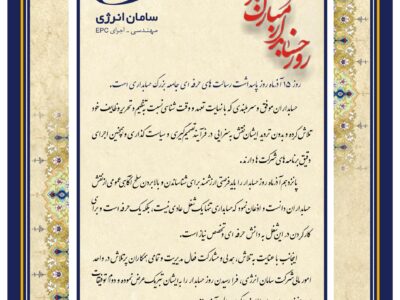 سامان انرژی
مهندسی - اجرای EPC
روز حسابدار مبارک باد
روز ۱۵ آذرماه روز پاسداشت رسالت های حرفه ای جامعه بزرگ حسابداری است.
حسابداران موفق و سربلندی که با نهایت تعهد و وقت شناسی نسبت به تنظیم و تحریر وظایف خود
تلاش کرده و بدون تردید ایشان نقش به سزایی در فرآیند تصمیم گیری و سیاست گذاری و همچنین اجرای
دقیق برنامه های شرکت ها دارند.
پانزدهم آذرماه روز حسابدار را باید فرصتی ارزشمند برای شناساندن و بالا بردن سطح آگاهی عمومی از نقش
حسابداران دانست و اذعان نمود که حسابداری تنها یک شغل عادی نیست، بلکه یک حرفه است و برای
کار کردن در این شغل به دانش حرفه ای و تخصص نیاز است.
اینجانب با عنایت به تلاش، همدلی و مشارکت فعال مدیریت و تمامی همکاران پرتلاش در واحد
امور مالی شرکت سامان انرژی، فرا رسیدن روز حسابدار را به ایشان تبریک عرض نموده و دوام توفیقات